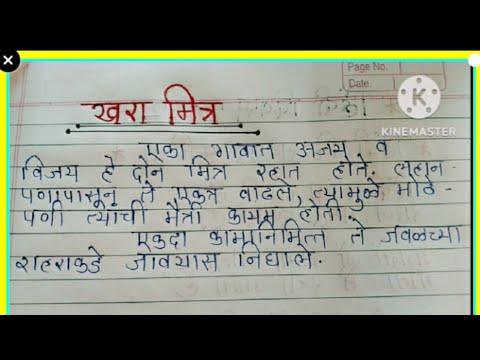 Page No.
Date.
खरा मित्र
KINEMASTER
एका गावात अजय व
विजय हे दोन मित्र रहात होते. लहान-
पणापासून ते एकत्र वाढले, त्यामुळे मोठे-
पणी त्यांची मैत्री कायम होती.
एकदा कामानिमित्त ते जवळच्या
शहराकडे जावयास निघाले.